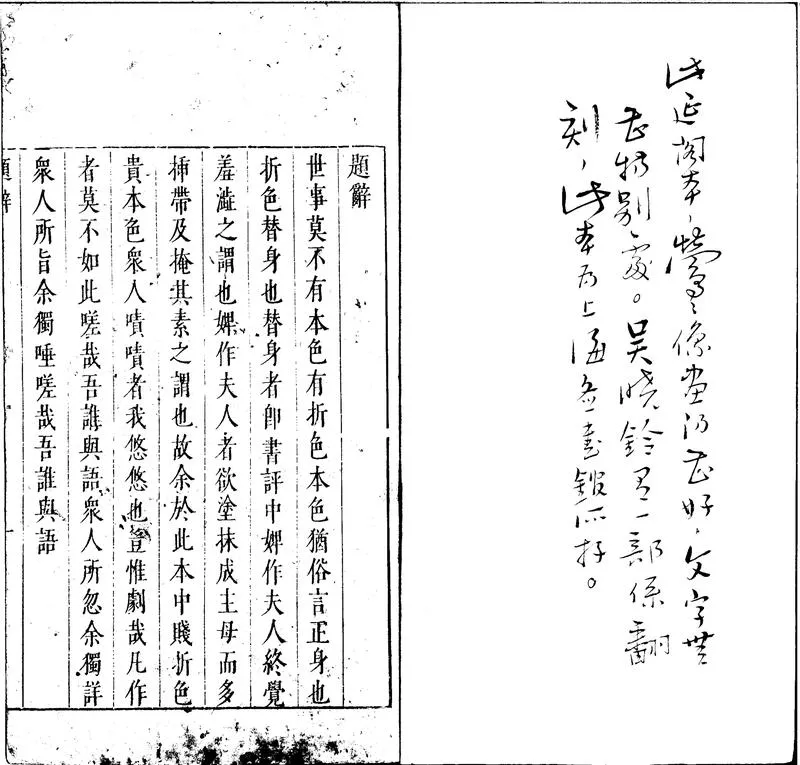 此延閣本，鶯〻像畫仍甚好，文字無
甚特別處。吴曉鈴有一部係翻
刻，此本为上海所存。
題辭
世事莫不有本色有折色本色猶俗言正身也
折色替身也替身者卽書評中婢作夫人終覺
羞澁之謂也婢作夫人者欲塗抹成主母而多
揷帶及掩其素之謂也故余於此本中賤折色
貴本色衆人嘖嘖者我悠悠也豈惟劇哉凡作
者莫不如此嗟哉吾誰與語衆人所忽余獨詳
衆人所旨余獨唾嗟哉吾誰與語
題辭 一